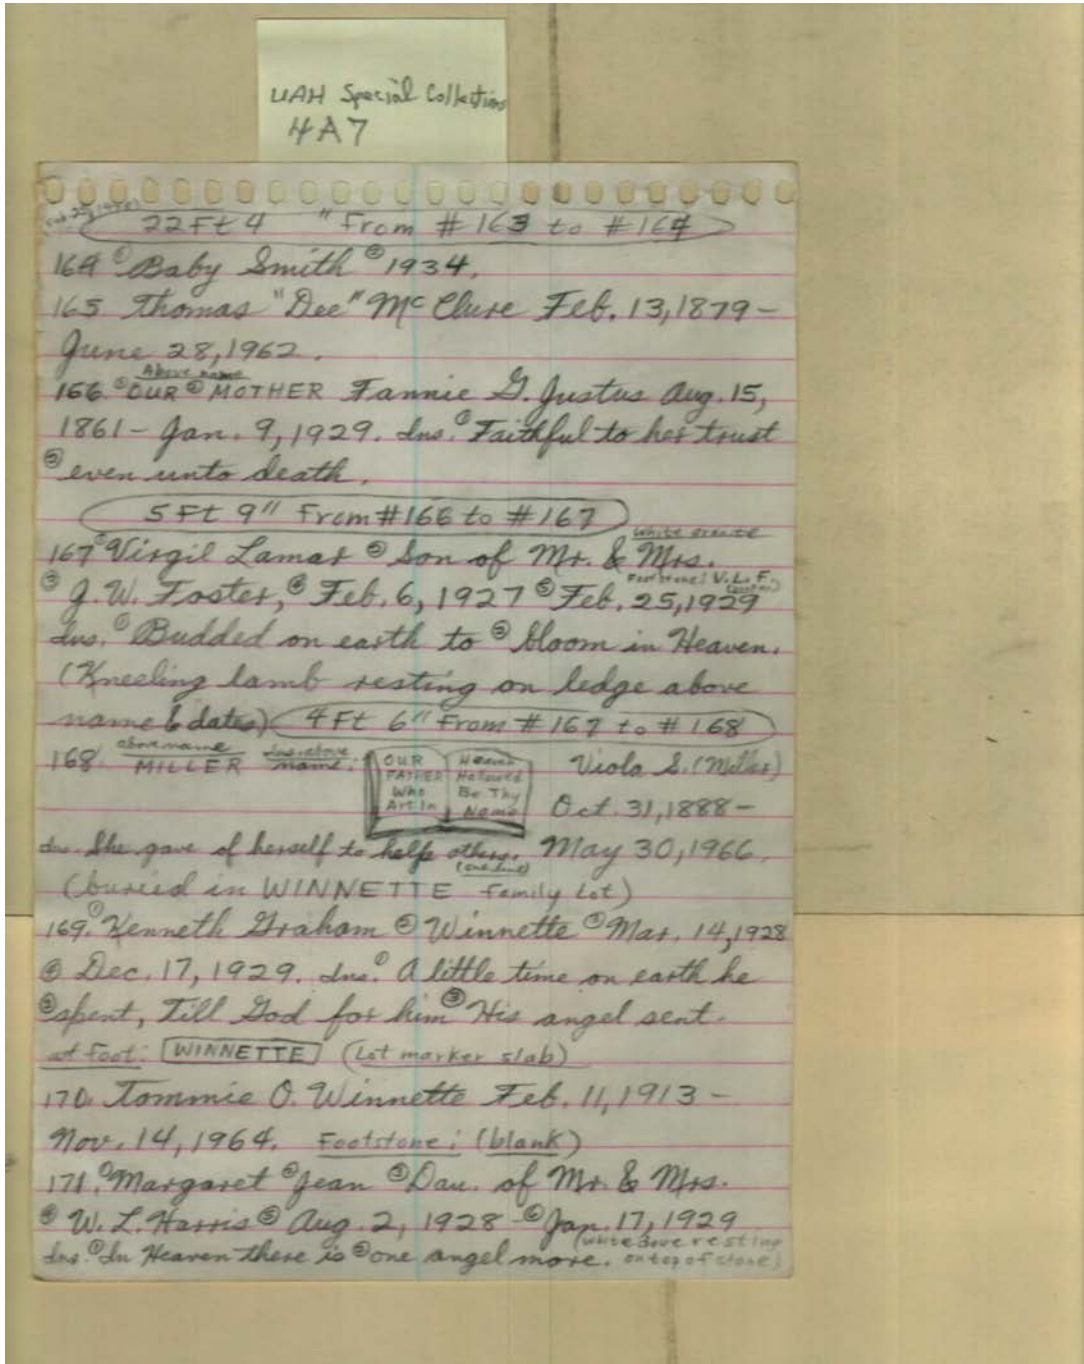 UAH Special Collections
4A7
22Ft 4 " From # 163 to # 164
164 ① Baby Smith ② 1934.
165 Thomas "Dee" Mc Clure Feb. 13, 1879 -
June 28, 1962.
Above name
166. ① OUR ② MOTHER Fannie G. Justus Aug. 15,
1861 - Jan. 9, 1929. Ins. ① Faithful to her trust
② even unto death.
5 Ft 9" From # 166 to # 167
White
167 ① Virgil Lamar ② Son of Mr. & Mrs.
Footstone: V. L. F.
③ J. W. Foster, ④ Feb. 6, 1927 ⑤ Feb. 25, 1929
Ins. ① Budded on earth to ② bloom in Heaven.
(Kneeling lamb resting on ledge above
name & dates) 4 Ft 6" From # 167 to # 168
above name Ins. above
168. MILLER name: OUR Heaven Viola S. (Miller)
FATHER Hallowed
Who Be Thy
Art In Name Oct. 31, 1888 -
Ins. She gave of herself to help others. May 30, 1966.
(one line)
(buried in WINNETTE Family Lot)
169. ① Kenneth Graham ② Winnette ③ Mar. 14, 1928
④ Dec. 17, 1929. Ins. ① A little time on earth he
② spent, Till God for him ③ His angel sent.
at Foot: WINNETTE (Lot marker slab)
170. Tommie O. Winnette Feb. 11, 1913 -
Nov. 14, 1964. Footstone: (blank)
171. ① Margaret ② Jean ③ Dau. of Mr. & Mrs.
④ W. L. Harris ⑤ Aug. 2, 1928 - ⑥ Jan. 17, 1929
(white dove resting
Ins. ① In Heaven there is ② one angel more. on top of stone)